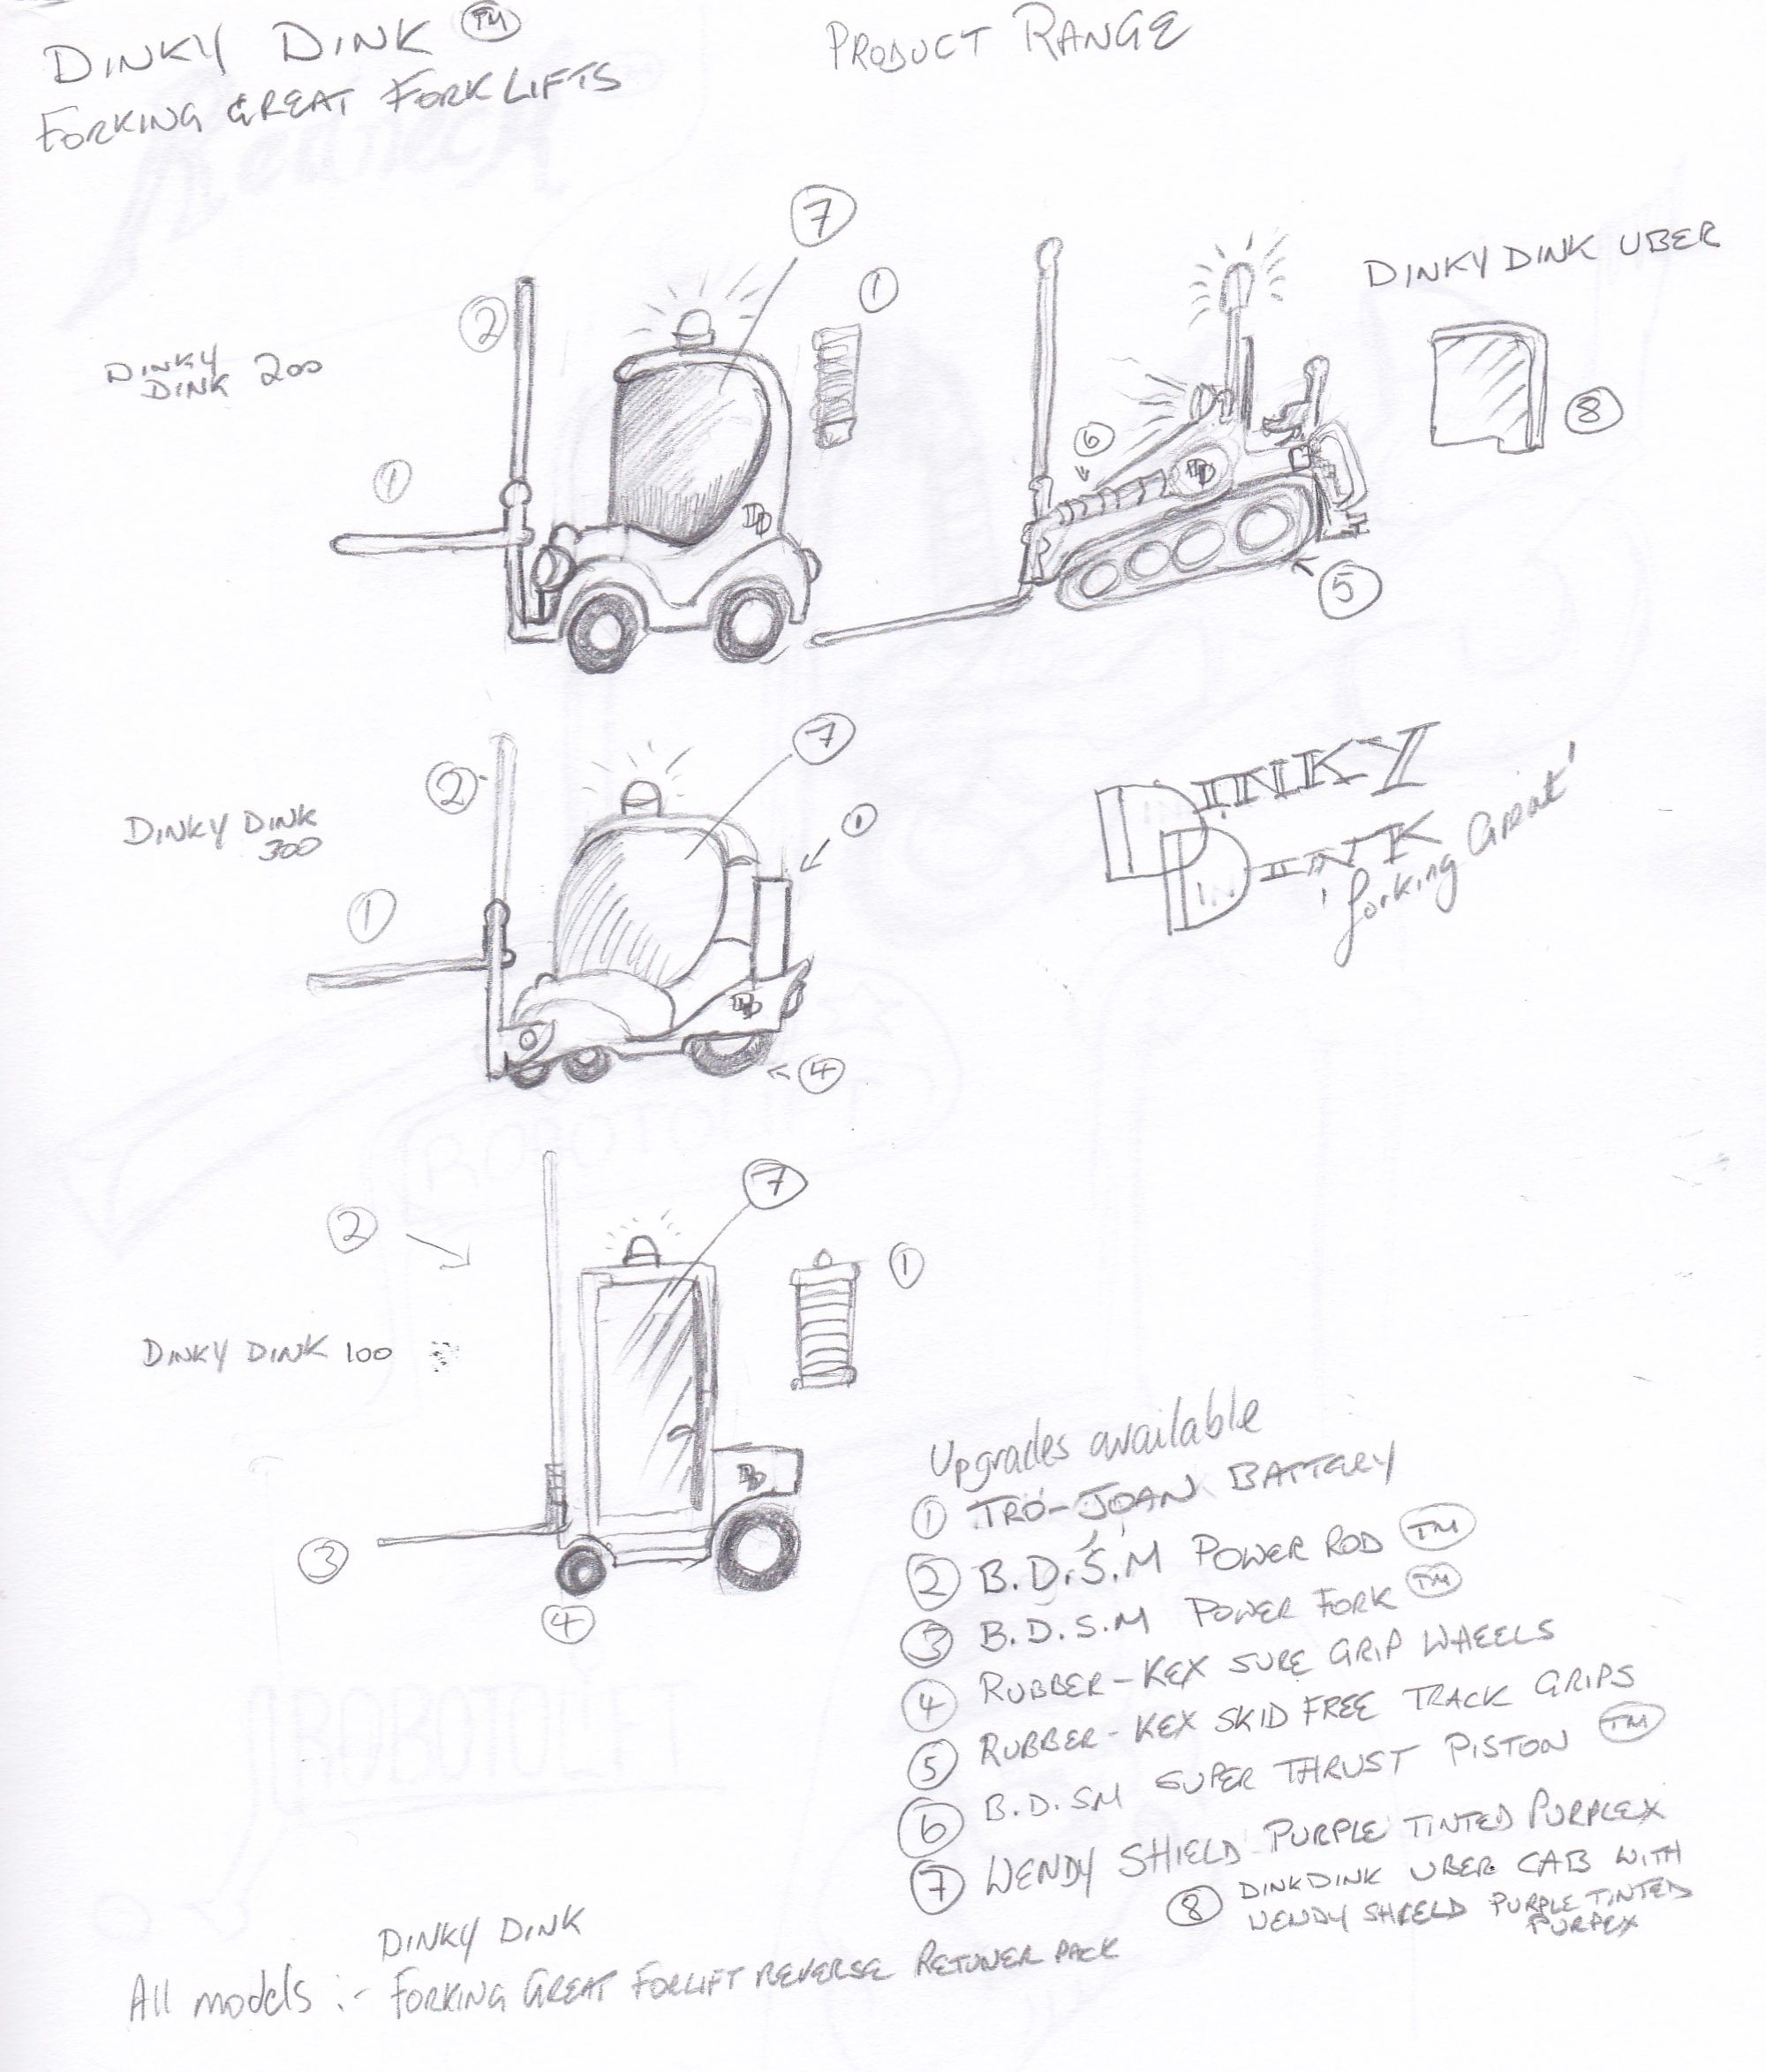 DINKY DINK TM
FORKING GREAT FORKLIFTS
PRODUCT RANGE
7
1
2
DINKY
DINK 200
1
DD
DINKY DINK UBER
6
DD
8
5
7
2
1
DINKY DINK
300
1
DD
4
DINKY
DINK
'forking Great'
7
2
1
DINKY DINK 100
DD
3
4
Upgrades available
1 TRO-JOAN BATTERY
2 B.D.S.M POWER ROD TM
3 B.D.S.M POWER FORK TM
4 RUBBER-KEX SURE GRIP WHEELS
5 RUBBER-KEX SKID FREE TRACK GRIPS
6 B.D.SM SUPER THRUST PISTON TM
7 WENDY SHIELD PURPLE TINTED PURPLEX
8 DINKDINK UBER CAB WITH
WENDY SHIELD PURPLE TINTED
PURPEX
DINKY DINK
All models :- FORKING GREAT FORLIFT REVERSE RETUNER PACK
ROBOTOLIFT
Redneck
ROBOTOLIFT